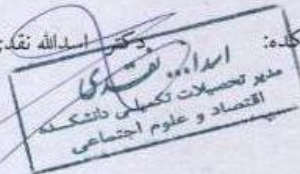 کده: دکتر اسدالله نقدی
اسدا... نقدی
مدیر تحصیلات تکمیلی دانشکده
اقتصاد و علوم اجتماعی